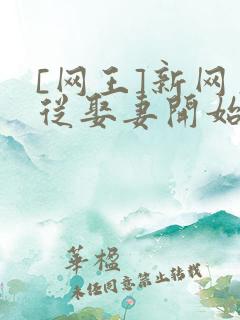 [网王]新网
从娶妻開始
華楹
未经同意禁止转载